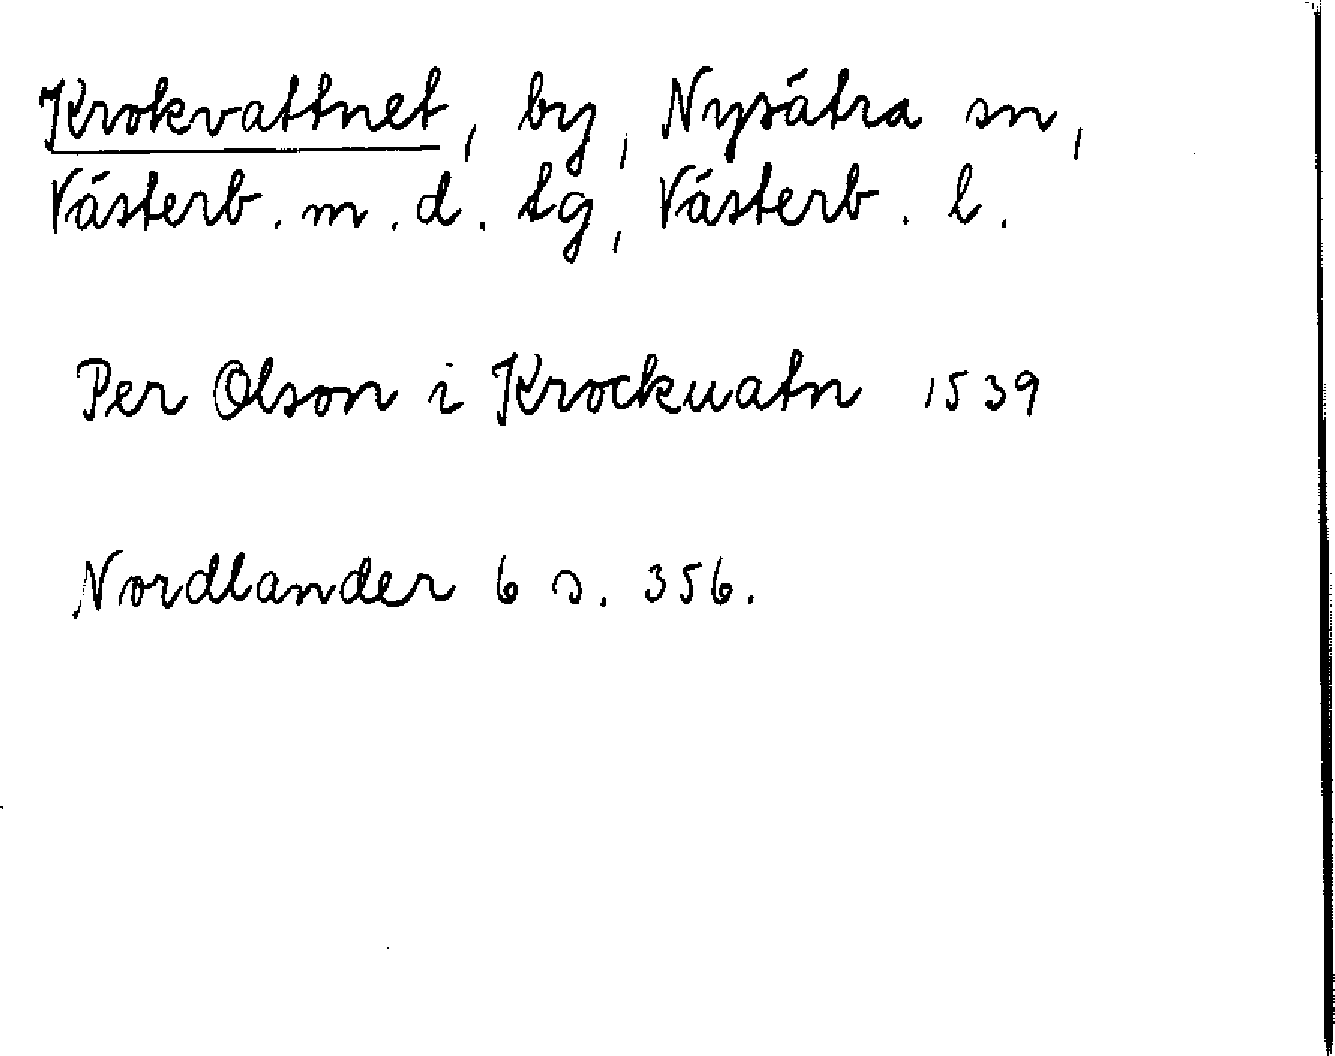 Krokvattnet, by, Nysätra sn,
Västerb. m. d. tg, Västerb. l.
Per Olson i Krockuatn 1539
Nordlander 6 s. 356.